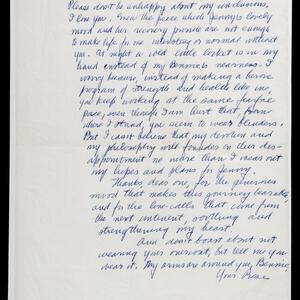 Please don't be unhappy about my conclusions.
I love you. Now the peace which Jenny's lovely
mood and her recovery provide are not enough
to make life for me interesting or normal without
you. At night a cold little locket is in my
hand instead of my Bennie's nearness. I
worry because, instead of making a heroic
program of strength and health like me,
you keep working at the same
pace, even though I am hurt that, from
where I stand, you seem to wear blinders.
But I can't believe that my devotion and
my philosophy will founder on this dis-
appointment no more than I wear out
my hopes and plans for Jenny.
Thanks, dear one, for the generous
mood that makes this journey bearable,
and for the love-calls that come from
the next continent, soothing and
strengthening my heart.
And don't boast about not
wearing your overcoat, but tell me you
wear it. My arms are around you, Bennie,
Your Rose